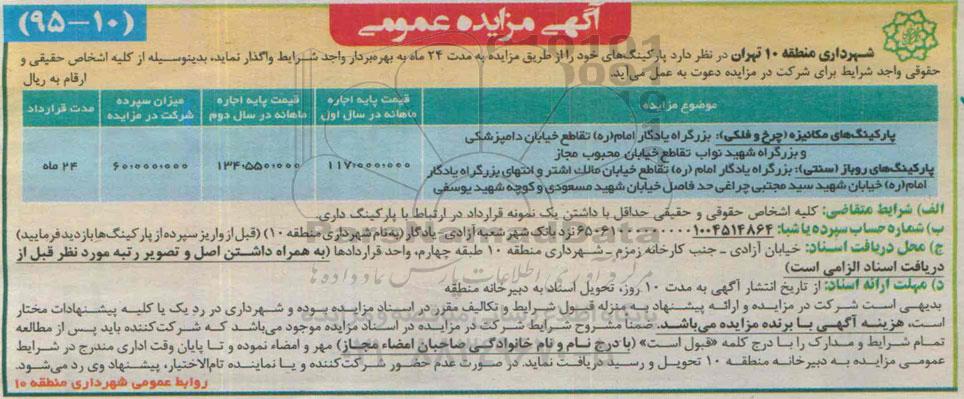 آگهی مزایده عمومی
(۱۰-۹۵)
شهرداری منطقه ۱۰ تهران در نظر دارد پارکینگ‌های خود را از طریق مزایده به مدت ۲۴ ماه به بهره‌بردار واجد شرایط واگذار نماید، بدینوسیله از کلیه اشخاص حقیقی و
حقوقی واجد شرایط برای شرکت در مزایده دعوت به عمل می‌آید.
ارقام به ریال
موضوع مزایده
قیمت پایه اجاره ماهانه در سال اول
قیمت پایه اجاره ماهانه در سال دوم
میزان سپرده شرکت در مزایده
مدت قرارداد
پارکینگ‌های مکانیزه (چرخ و فلکی): بزرگراه یادگار امام(ره) تقاطع خیابان دامپزشکی
و بزرگراه شهید نواب تقاطع خیابان محبوب مجاز
پارکینگ‌های روباز (سنتی): بزرگراه یادگار امام (ره) تقاطع خیابان مالک اشتر و انتهای بزرگراه یادگار
امام(ره) خیابان شهید سید مجتبی چراغی حد فاصل خیابان شهید مسعودی و کوچه شهید یوسفی
۱۱۷۰۰۰۰۰۰۰
۱۳۴۰۵۵۰۰۰۰
۶۰۰۰۰۰۰۰۰۰
۲۴ ماه
الف) شرایط متقاضی: کلیه اشخاص حقوقی و حقیقی حداقل با داشتن یک نمونه قرارداد در ارتباط با پارکینگ داری.
ب) شماره حساب سپرده یا شبا: نزد بانک شهر شعبه آزادی - یادگار (به نام شهرداری منطقه ۱۰) (قبل از واریز سپرده از پارکینگ‌ها بازدید فرمایید)
ج) محل دریافت اسناد: خیابان آزادی - جنب کارخانه زمزم - شهرداری منطقه ۱۰ طبقه چهارم، واحد قراردادها (به همراه داشتن اصل و تصویر رتبه مورد نظر قبل از
دریافت اسناد الزامی است)
د) مهلت ارائه اسناد: از تاریخ انتشار آگهی به مدت ۱۰ روز، تحویل اسناد به دبیرخانه منطقه
بدیهی است شرکت در مزایده و ارائه پیشنهاد به منزله قبول شرایط و تکالیف مقرر در اسناد مزایده بوده و شهرداری در رد یک یا کلیه پیشنهادات مختار
است، هزینه آگهی با برنده مزایده می‌باشد. ضمناً مشروح شرایط شرکت در مزایده در اسناد مزایده موجود می‌باشد که شرکت‌کننده باید پس از مطالعه
تمام شرایط و مدارک را با درج کلمه «قبول است» (با درج نام و نام خانوادگی صاحبان امضاء مجاز) مهر و امضاء نموده و تا پایان وقت اداری مندرج در شرایط
عمومی مزایده به دبیرخانه منطقه ۱۰ تحویل و رسید دریافت نماید. در صورت عدم حضور شرکت‌کننده و یا نماینده تام‌الاختیار، پیشنهاد وی رد می‌شود.
روابط عمومی شهرداری منطقه ۱۰